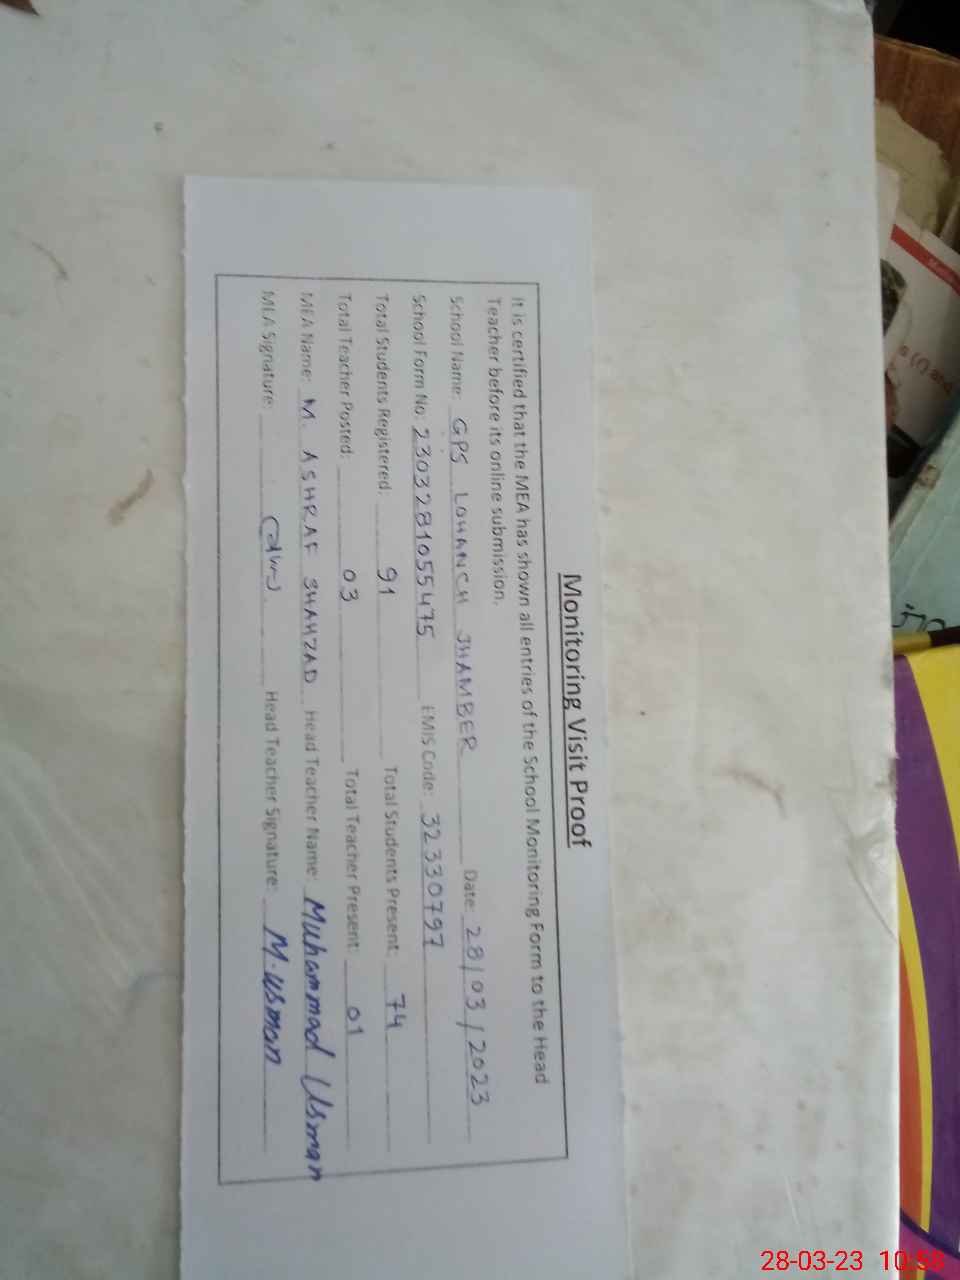 Monitoring Visit Proof
It is certified that the MEA has shown all entries of the School Monitoring Form to the Head
Teacher before its online submission.
School Name: GPS LOHANCH JHAMBER Date: 28/03/2023
School Form No: 2303281055475 EMIS Code: 32330797
Total Students Registered: 91 Total Students Present: 74
Total Teacher Posted: 03 Total Teacher Present: 01
MEA Name: M. ASHRAF SHAHZAD Head Teacher Name: Muhammad Usman
MEA Signature: Head Teacher Signature: M.usman
28-03-23 10:58